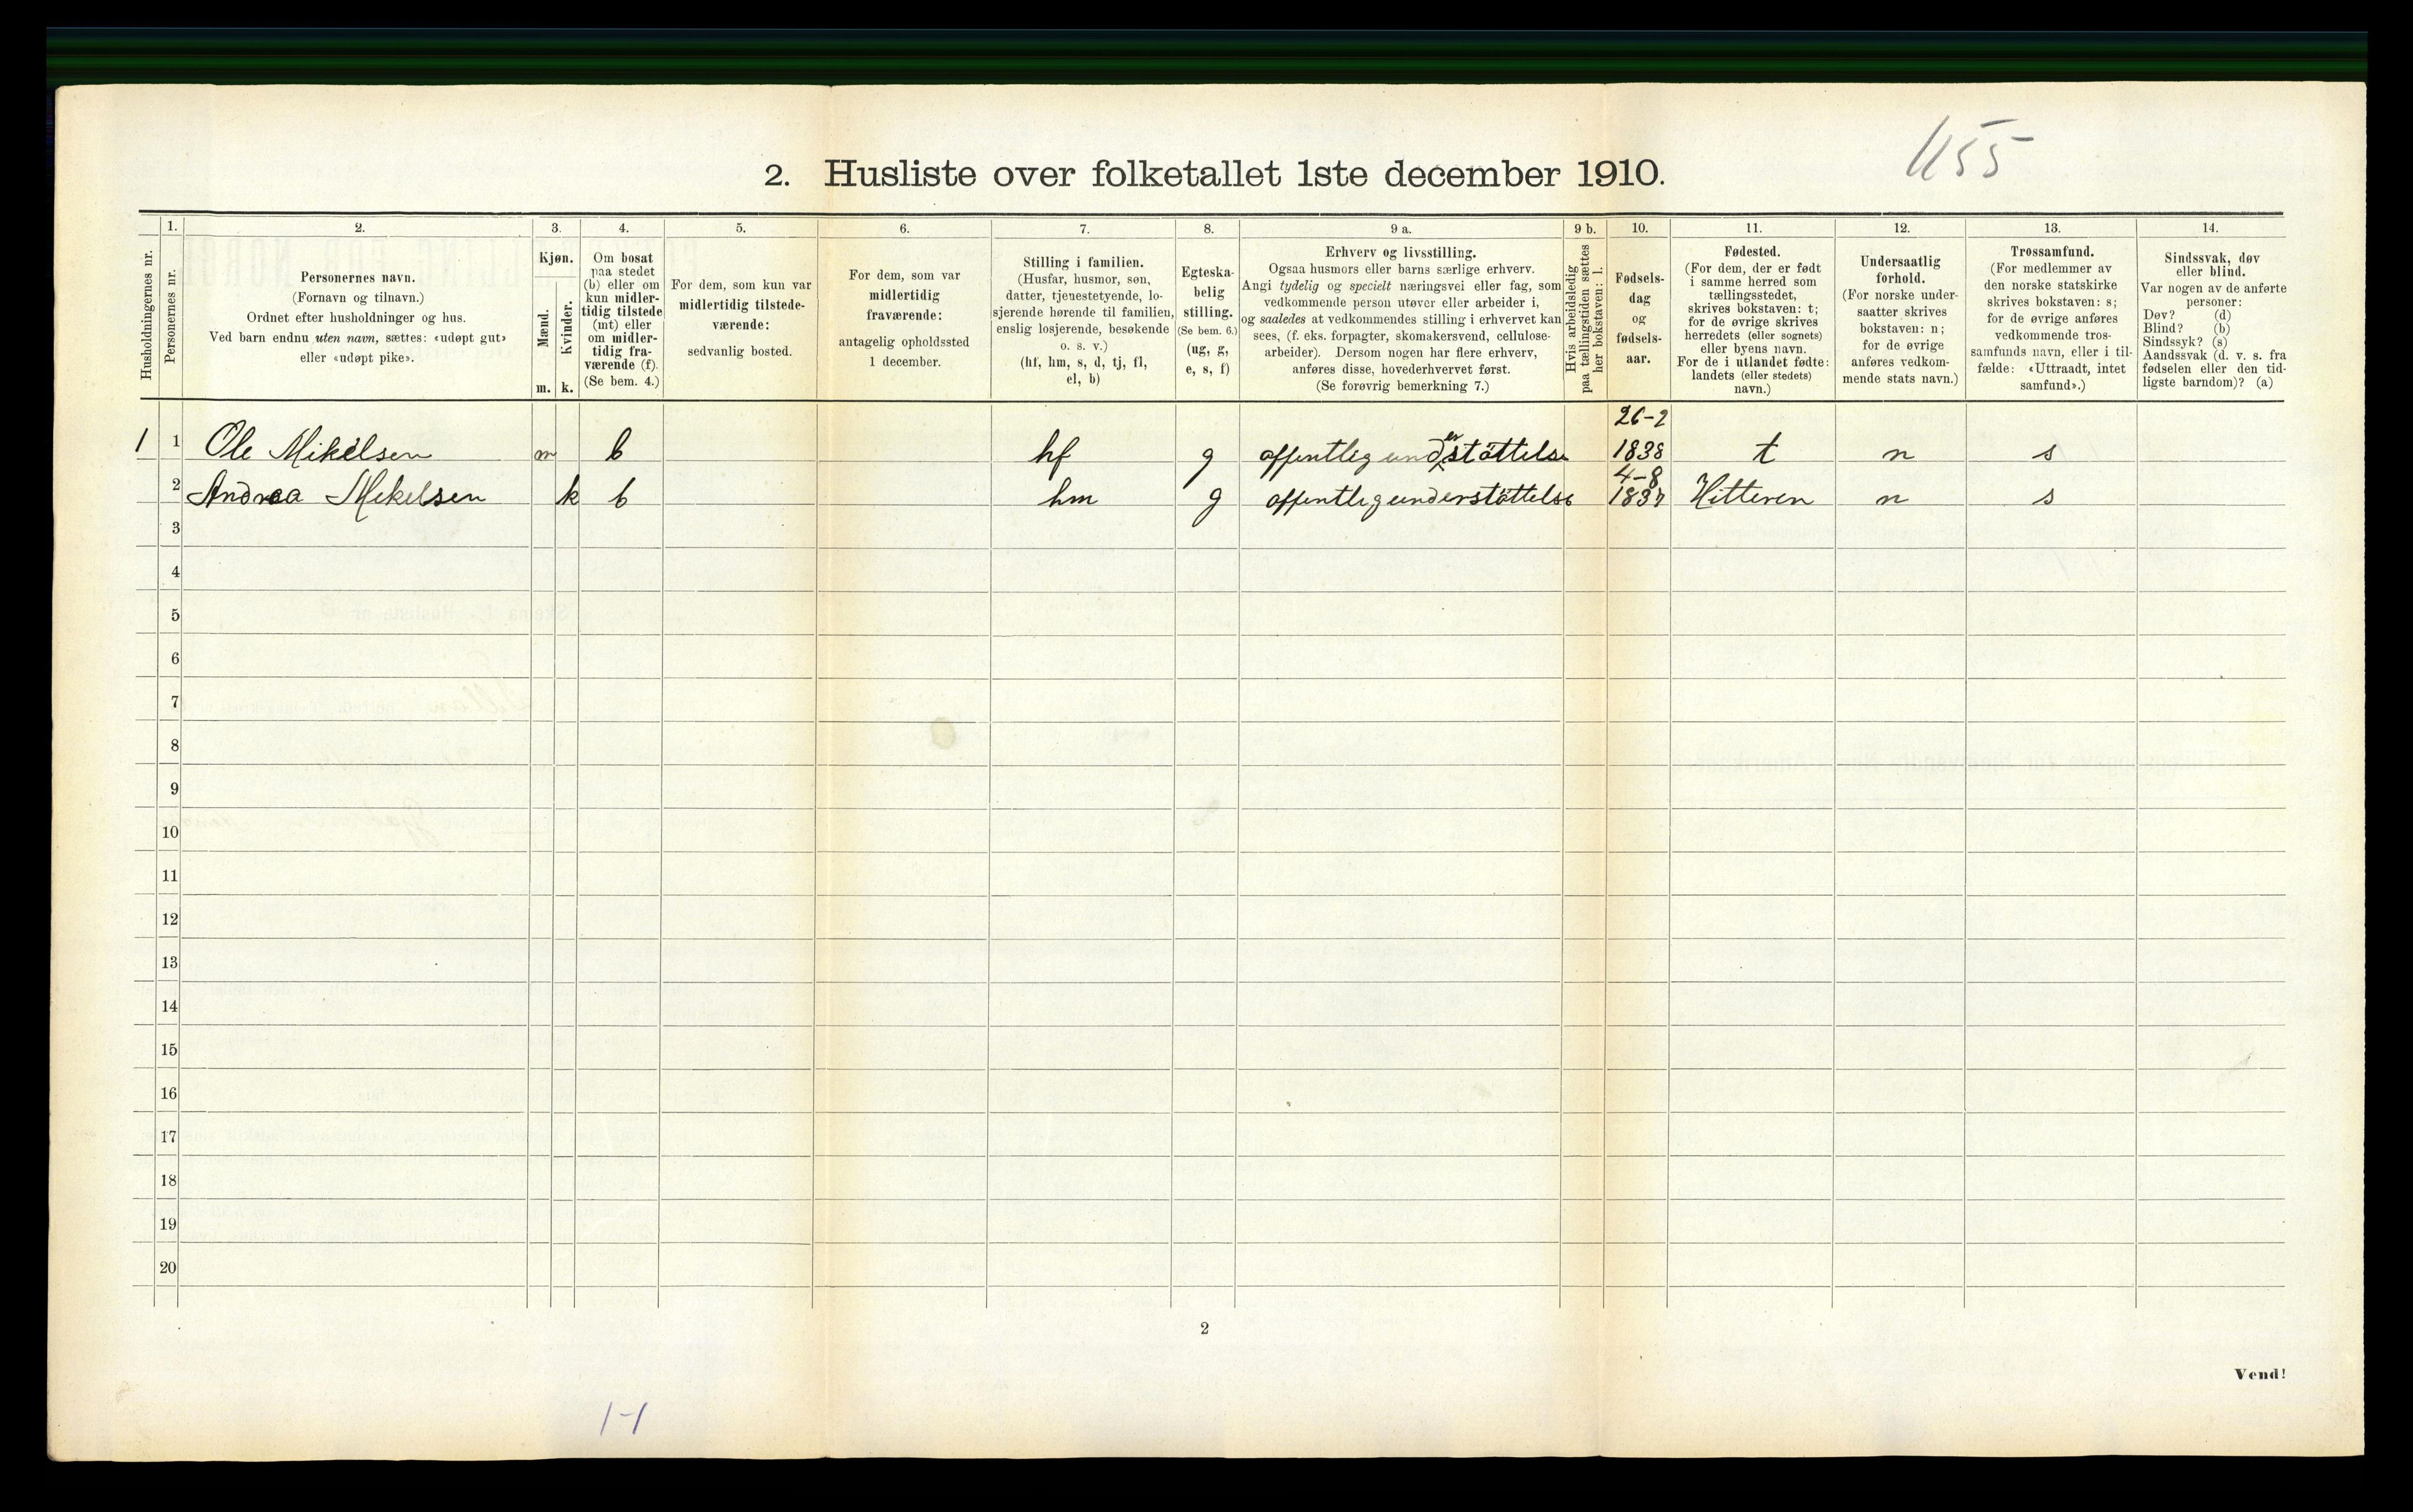 1155
2. Husliste over folketallet 1ste december 1910.
Husholdningernes nr.
1.
Personernes nr.
2.
Personernes navn.
(Fornavn og tilnavn.)
Ordnet efter husholdninger og hus.
Ved barn endnu uten navn, sættes: «udøpt gut»
eller «udøpt pike».
3.
Kjøn.
Mænd.
m.
Kvinder.
k.
4.
Om bosat
paa stedet
(b) eller om
kun midler-
tidig tilstede
(mt) eller
om midler-
tidig fra-
værende (f).
(Se bem. 4.)
5.
For dem, som kun var
midlertidig tilstede-
værende:
sedvanlig bosted.
6.
For dem, som var
midlertidig
fraværende:
antagelig opholdssted
1 december.
7.
Stilling i familien.
(Husfar, husmor, søn,
datter, tjenestetyende, lo-
sjerende hørende til familien,
enslig losjerende, besøkende
o. s. v.)
(hf, hm, s, d, tj, fl,
el, b)
8.
Egteska-
belig
stilling.
(Se bem. 6.)
(ug, g,
e, s, f)
9 a.
Erhverv og livsstilling.
Ogsaa husmors eller barns særlige erhverv.
Angi tydelig og specielt næringsvei eller fag, som
vedkommende person utøver eller arbeider i,
og saaledes at vedkommendes stilling i erhvervet kan
sees, (f. eks. forpagter, skomakersvend, cellulose-
arbeider). Dersom nogen har flere erhverv,
anføres disse, hovederhvervet først.
(Se forøvrig bemerkning 7.)
9 b.
Hvis arbeidsledig
paa tællingstiden sættes
her bokstaven: l.
10.
Fødsels-
dag
og
fødsels-
aar.
11.
Fødested.
(For dem, der er født
i samme herred som
tællingsstedet,
skrives bokstaven: t;
for de øvrige skrives
herredets (eller sognets)
eller byens navn.
For de i utlandet fødte:
landets (eller stedets)
navn.)
12.
Undersaatlig
forhold.
(For norske under-
saatter skrives
bokstaven: n;
for de øvrige
anføres vedkom-
mende stats navn.)
13.
Trossamfund.
(For medlemmer av
den norske statskirke
skrives bokstaven: s;
for de øvrige anføres
vedkommende tros-
samfunds navn, eller i til-
fælde: «Uttraadt, intet
samfund».)
14.
Sindssvak, døv
eller blind.
Var nogen av de anførte
personer:
Døv? (d)
Blind? (b)
Sindssyk? (s)
Aandssvak (d. v. s. fra
fødselen eller den tid-
ligste barndom)? (a)
1 1 Ole Mikelsen m b hf g offentlig understöttelse 26-2 1838 t n s
2 Andrea Mikelsen k b hm g offentlig understöttelse 4-8 1837 Hitteren n s
3
4
5
6
7
8
9
10
11
12
13
14
15
16
17
18
19
20
2
Vend!
1-1